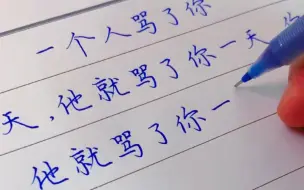 一个人骂了你
天，他就骂了你一天
他就骂了你一